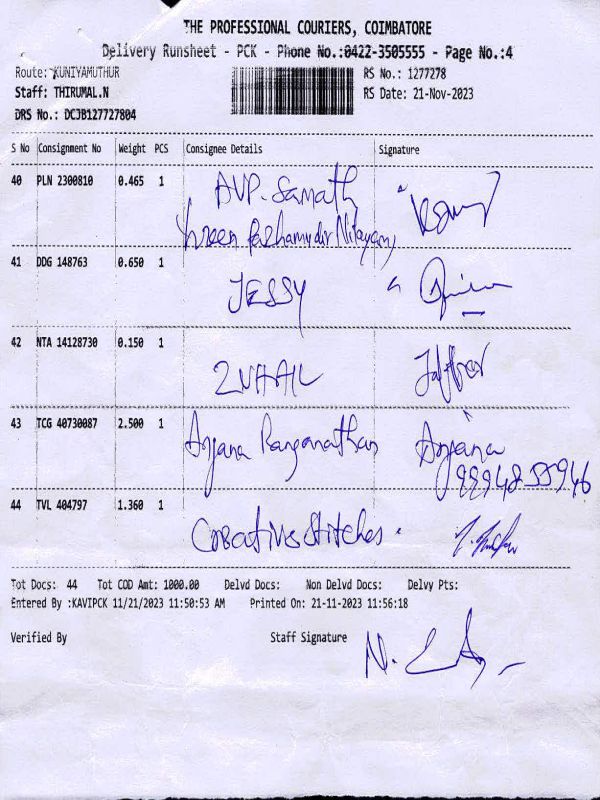 THE PROFESSIONAL COURIERS, COIMBATORE
Delivery Runsheet - PCK - Phone No.:0422-3505555 - Page No.:4
Route: KUNIYAMUTHUR RS No.: 1277278
Staff: THIRUMAL.N RS Date: 21-Nov-2023
DRS No.: DCJB127727804
S No Consignment No Weight PCS Consignee Details Signature
40 PLN 2300810 0.465 1 AVP. Sarnath
Pazhamudir Nilayam
41 DDG 148763 0.650 1 JESSY
42 NTA 14128730 0.150 1 ZUHAIL Jaffer
43 TCG 40730087 2.500 1 Anjana Ranganathan Anjana
9994855946
44 TVL 404797 1.360 1 Creative Stitches.
Tot Docs: 44 Tot COD Amt: 1000.00 Delvd Docs: Non Delvd Docs: Delvy Pts:
Entered By :KAVIPCK 11/21/2023 11:50:53 AM Printed On: 21-11-2023 11:56:18
Verified By Staff Signature